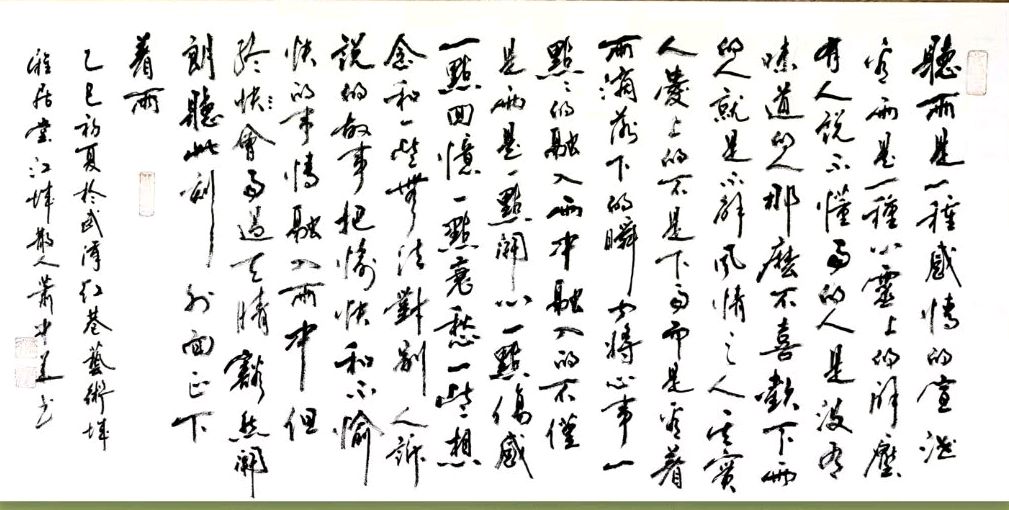 聽雨是一種感情的宣泄
看雨是一種心靈上的解壓
有人說不懂雨的人是沒有
味道的人那麽不喜歡下雨
的人就是不解風情之人其實
人愛上的不是下雨而是看着
雨滴落下的瞬间將心事一
點點的融入雨中融入的不僅
是雨是一點開心一點傷感
一點回憶一點哀愁一些想
念和一些無法對别人訴
說的故事把愉快和不愉
快的事情融入雨中但
終快會雨過天晴豁然開
朗聽此刻 外面正下
着雨
乙巳初夏於武漢红巷藝術城
雅居堂江城散人蕭中書